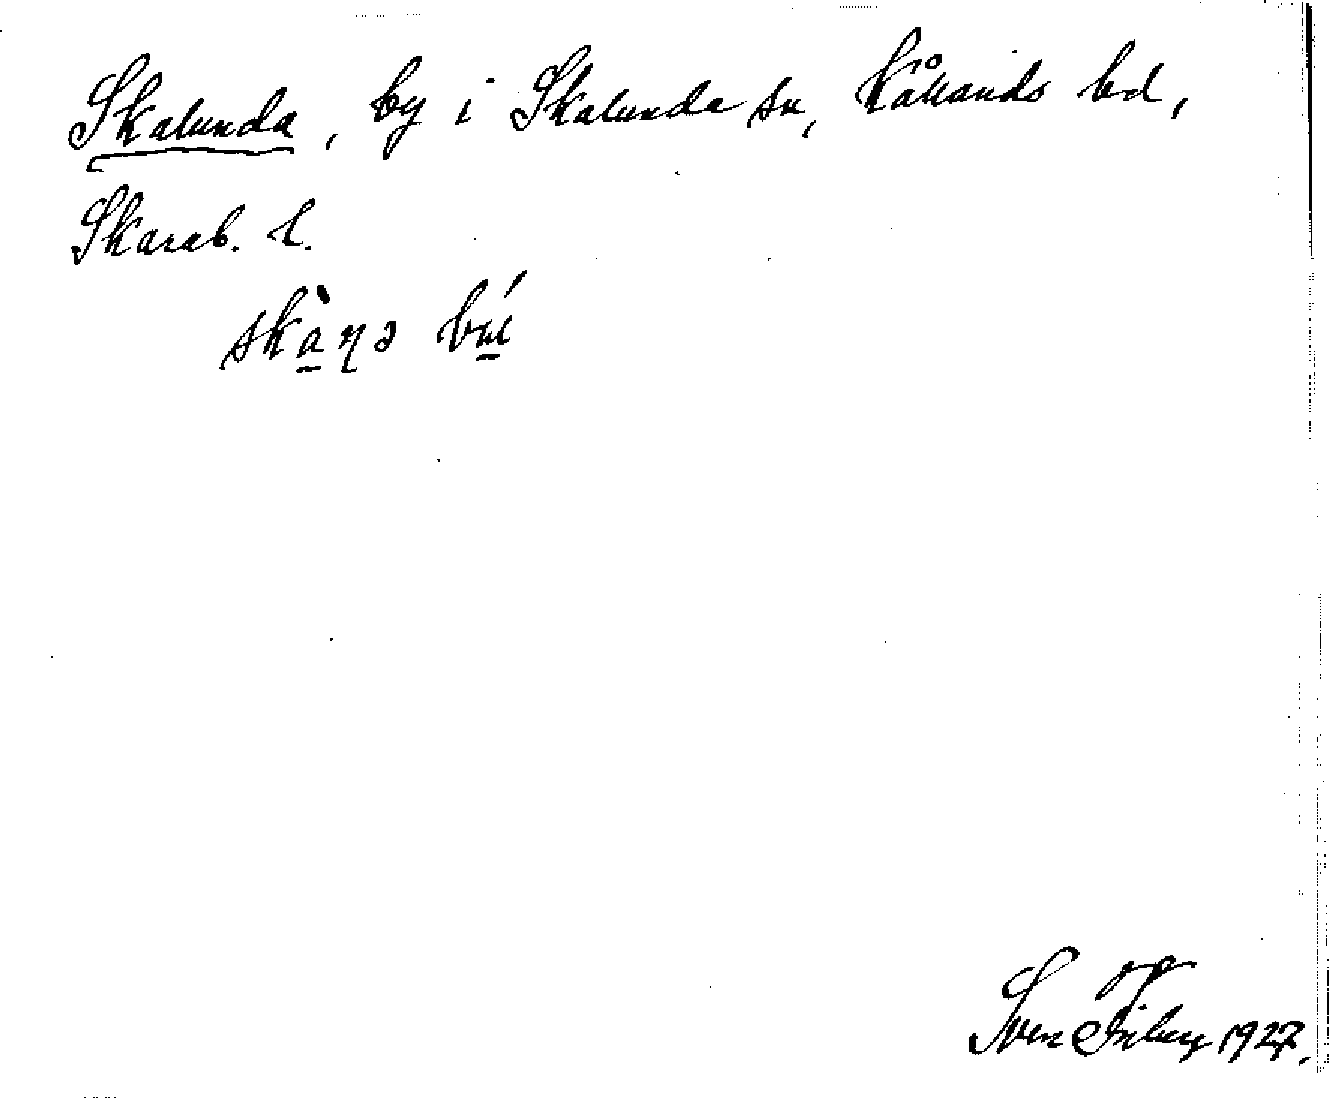 Skalunda, by i Skalunda sn, Kållands hd,
Skarab. l.
skàṉə bẃ
Sven Filéen 1927.